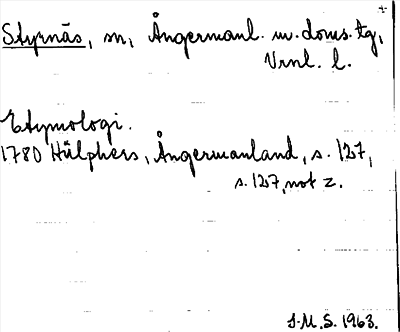 Styrnäs, sn, Ångermanl. m. doms. tg,
Vrnl. l.
Etymologi.
1780 Hülphers, Ångermanland, s. 127,
s. 127, not z.
J.M.S. 1963.